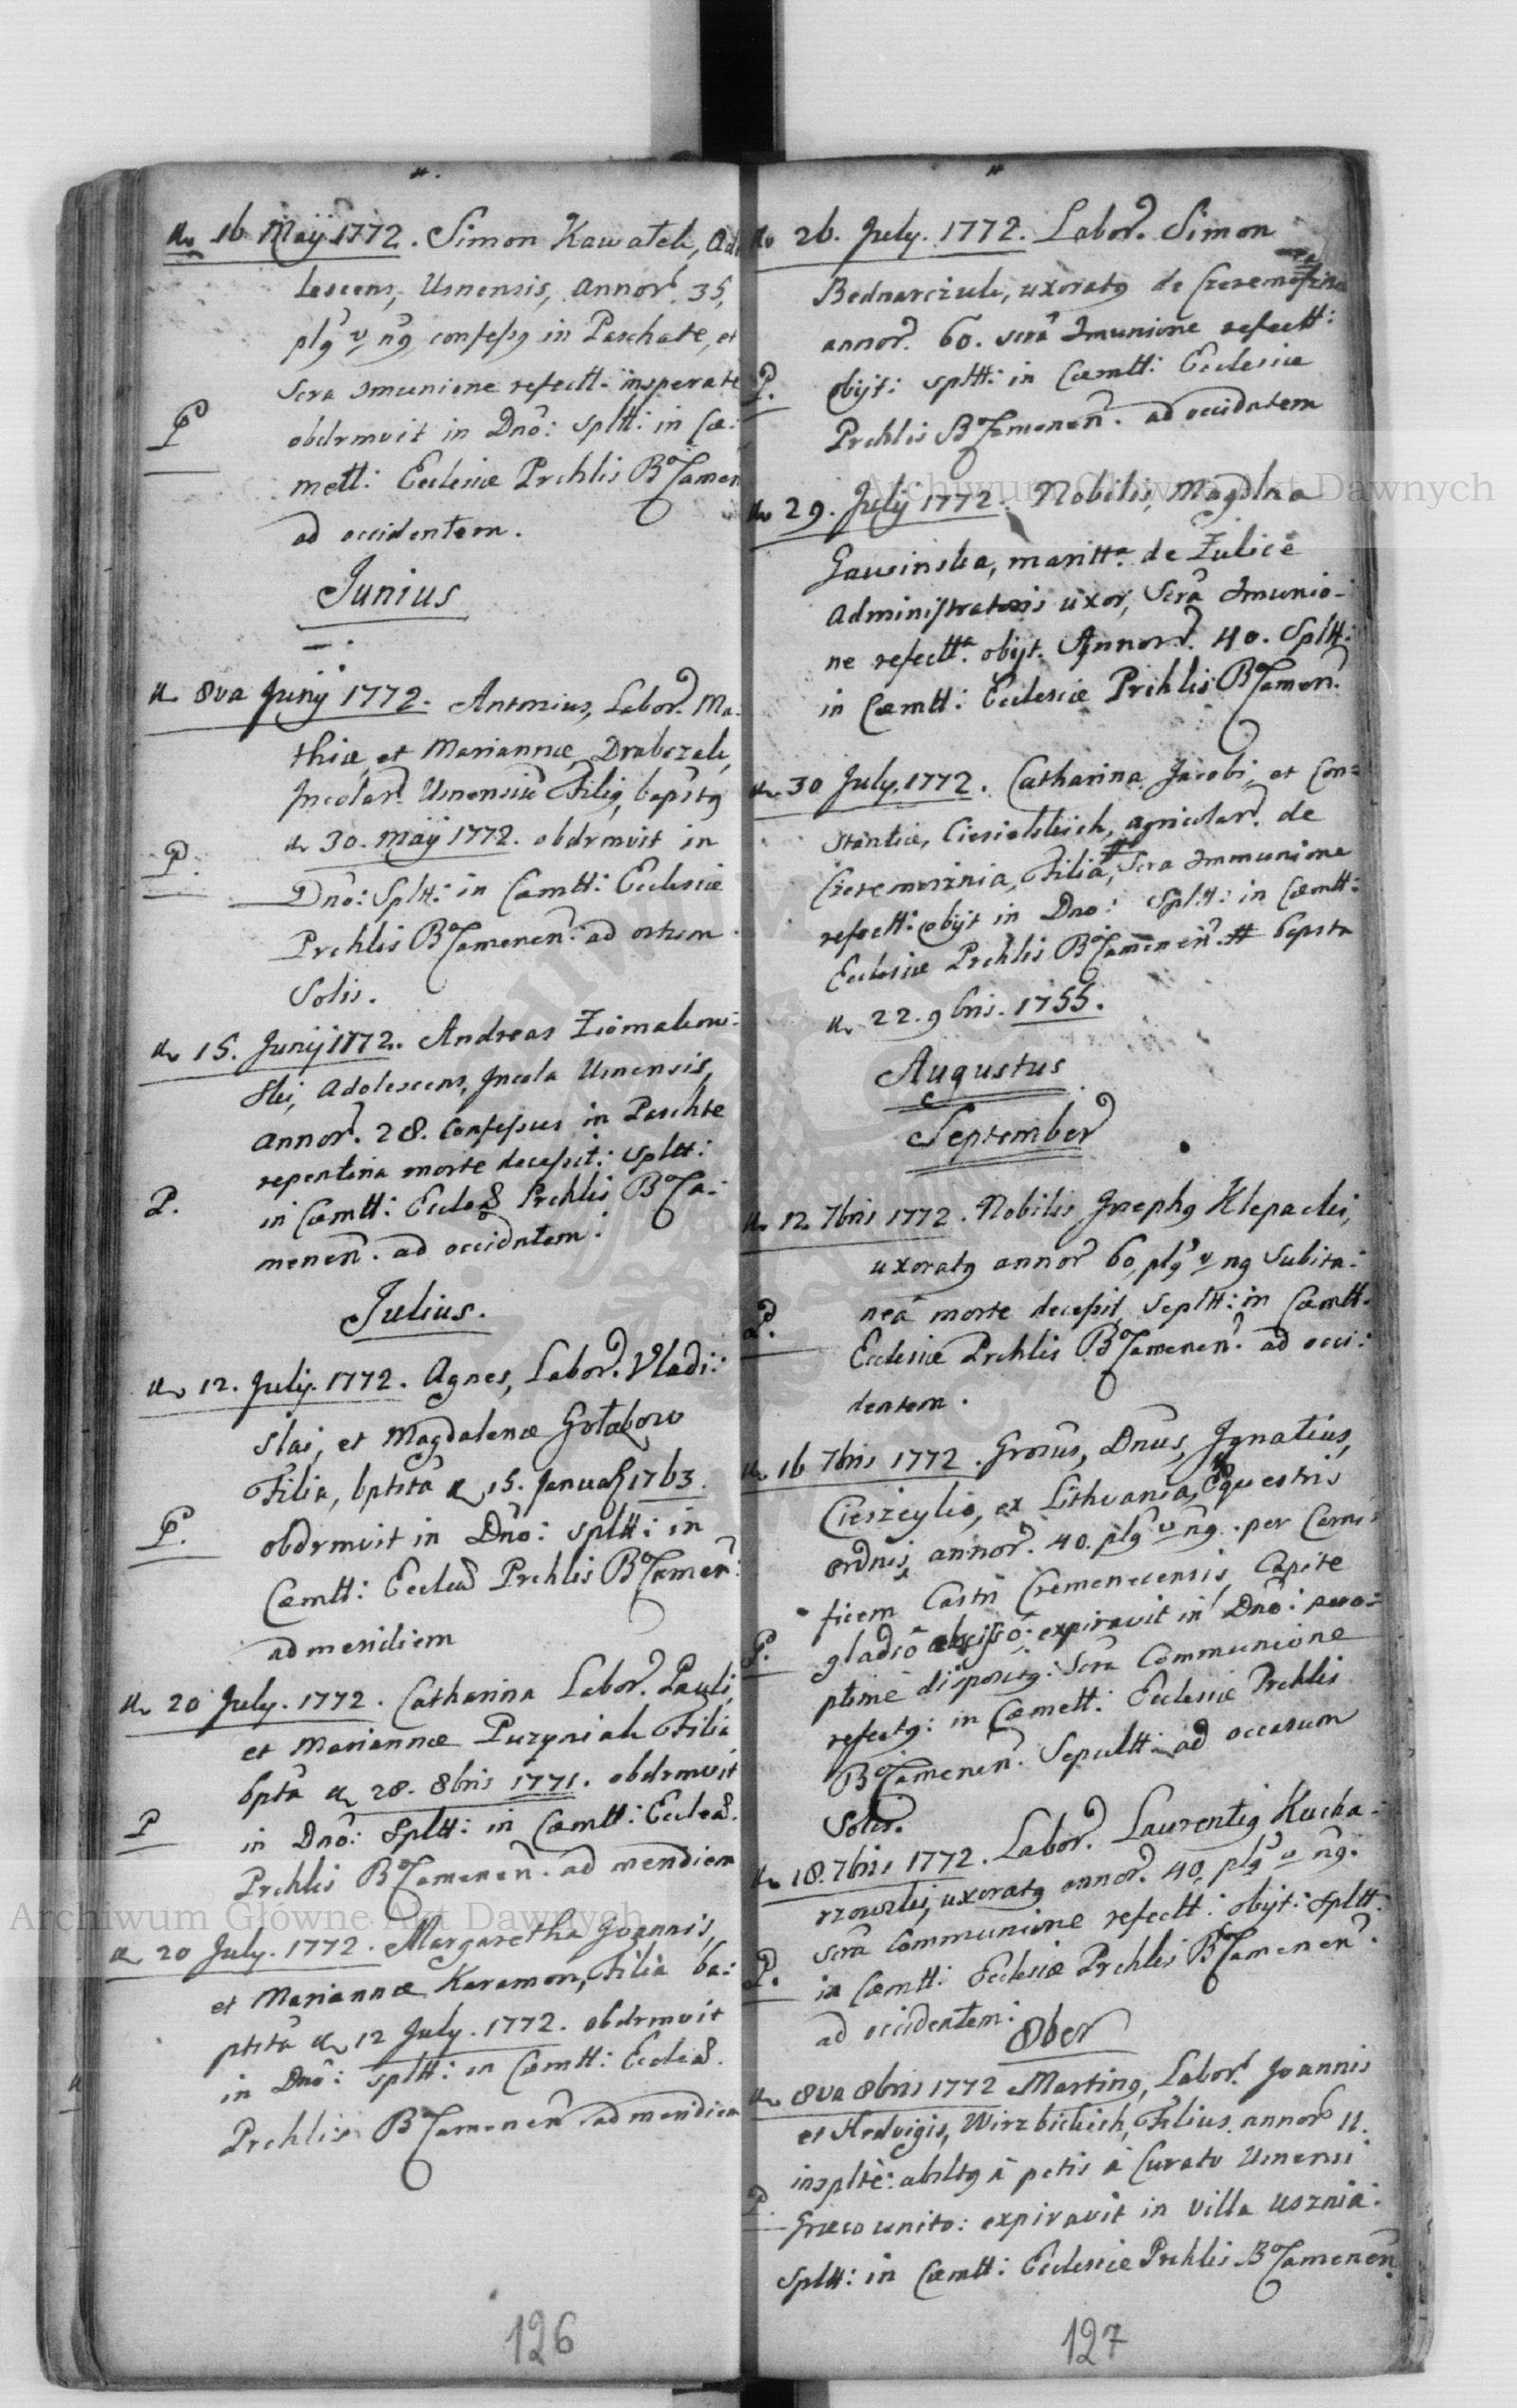 16 Maij 1772. Simon Kawałek, Ado
lescens, Usnensis, Annor. 35,
plg v ng confessg in Paschate, et
Scra Imunione refectt. insperate
P obdrmvit in Dno: Spltt: in Cæ:
mett: Ecclesiæ Prchlis BoCamen
ad occidentem.
Junius
8va Junij 1772. Antonius, Labor. Ma.
thiæ, et Mariannæ, Drabczak,
Incolar. Usnensiu Filig, bapstg
30. Maij 1772. obdrmvit in
P. Dno: Spltt: in Cæmtt: Ecclesiæ
Prchlis BoCamenen: ad ortum
Solis.
15. Junij 1772. Andreas Ziomakow:
ski, Adolescens, Incola Usnensis,
Annor. 28. Confessus in Paschte
repentina morte decessit: Spltt:
P. in Cæmtt: Eccles Prchlis BoCa:
menen. ad occidntem.
Julius.
12. Julij. 1772. Agnes, Labor. Vladi:
slai, et Magdalenæ Gołąbow
Filia, bptsta 15. Januar 1763.
P. obdrmvit in Dno: Spltt: in
Cæmtt: Eccles Prchlis BoCamen:
ad meridiem
20 July. 1772. Catharina Labor. Pauli,
et Mariannæ Puzyniak Filia
bpta 28. 8bris 1771. obdrmvit
P in Dno: Spltt: in Cæmtt: Eccles.
Prchlis BoCamenen. ad meridiem
20 July. 1772. Margaretha Joannis,
et Mariannæ Karamon, Filia ba:
ptsta 12 July. 1772. obdrmvit
in Dno: Spltt: in Cæmtt: Eccles.
Prchlis BoCamenen ad meridiem
126
26. July. 1772. Labor. Simon
Bednarczuk, uxoratg de
annor. 60. scra Imunione refectt:
P. obijt: spltt: in Cæmtt: Ecclesiæ
Prchlis BoCamenen. ad occidntem
29. Julij 1772. Nobilis, Magdlna
Gawinska, maritta de Zulice
Administratoris uxor, Scra Imunio-
ne refectta. obijt. Annor. 40. Spltt:
in Cæmtt: Ecclesiæ Prchlis BoCamen.
30 July. 1772. Catharina Jacobi, et Con=
stantiæ, Ciesielskich, agricolar. de
Czeremosznia, Filia, # Scra Immunione
refectt: obijt in Dno: Spltt: in Cæmtt:
Ecclesiæ Prchlis BoCamenen. # bapsta
22. 9bris. 1755.
Augustus
September
12. 7bris 1772. Nobilis Josephg Klepacki,
uxoratg annor 60, plg v ng Subita:
P. nea morte decessit, Sepltt: in Cæmtt.
Ecclesiæ Prchlis BoCamenen. ad occi:
dentem.
16 7bris 1772. Grosus, Dnus, Ignatius,
Cieszeyko, ex Lithvania, Equestris
ordnis, annor. 40. plg v ng. per Carni:
ficem Castri Cremenecensis, Capite
P. gladio abscisso: expiravit in Dno:
ptime dispositg: Scra Communione
refectg: in Cæmett: Ecclesiæ Prchlis
BoCamenen. Sepultt. ad occasum
Solis.
18. 7bris 1772. Labor. Laurentig Kucha:
rzowski, uxoratg annor. 40, plg v ng.
scra Communione refectt: obijt: spltt:
P. in Cæmtt: Ecclesiæ Prchlis BoCamenen.
ad occidentem:
8ber
8va 8bris 1772 Marting, Labor. Joannis
et Hedvigis, Wirzbickich, Filius. annor 11.
insplte: absltg à pctis à Curato Usnensi
P. Græco unito: expiravit in villa Usznia:
Spltt: in Cæmtt: Ecclesiæ Prchlis BoCamenen
127
Archiwum Główne Akt Dawnych
Archiwum Główne Akt Dawnych